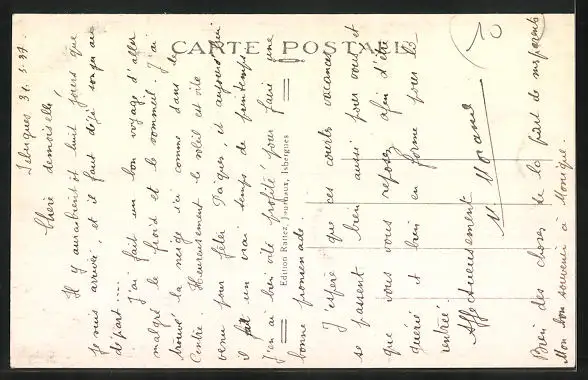 CARTE POSTALE
Edition Rattez, Journaux, Isbergues
Isbergues 31.3.37.
Chère demoiselle,
Il y aura bientôt huit jours que
je suis arrivée, et il faut déjà songer au
départ ....
J'ai fait un bon voyage d'aller
malgré le froid et le sommeil. J'ai
trouvé la neige ici comme dans le
Centre. Heureusement le soleil est vite
venu pour fêter Pâques, et aujourd'hui
il fait un vrai temps de printemps.
J'en ai bien vite profité pour faire une
bonne promenade.
J'espère que ces courtes vacances
se passent bien aussi pour vous et
que vous vous reposez afin d'être
guérie et bien en forme pour la
rentrée.
Affectueusement
M.
Bien des choses de la part de mes parents
Mon bon souvenir à Monique.